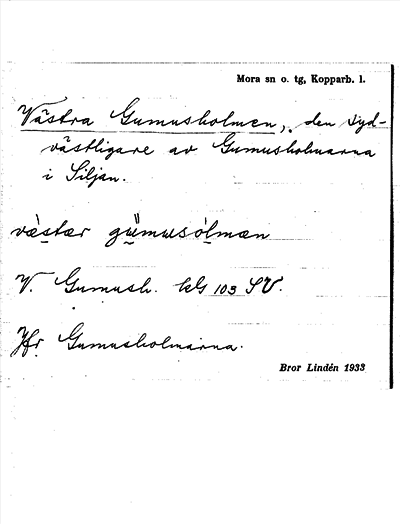 Mora sn o. tg, Kopparb. l.
Västra Gumusholmen, den syd-
västligare av Gumusholmarna
i Siljan.
væstær gumusólmæn
V. Gumush. kbl 103 SV.
Jfr Gumusholmarna.
Bror Lindén 1933